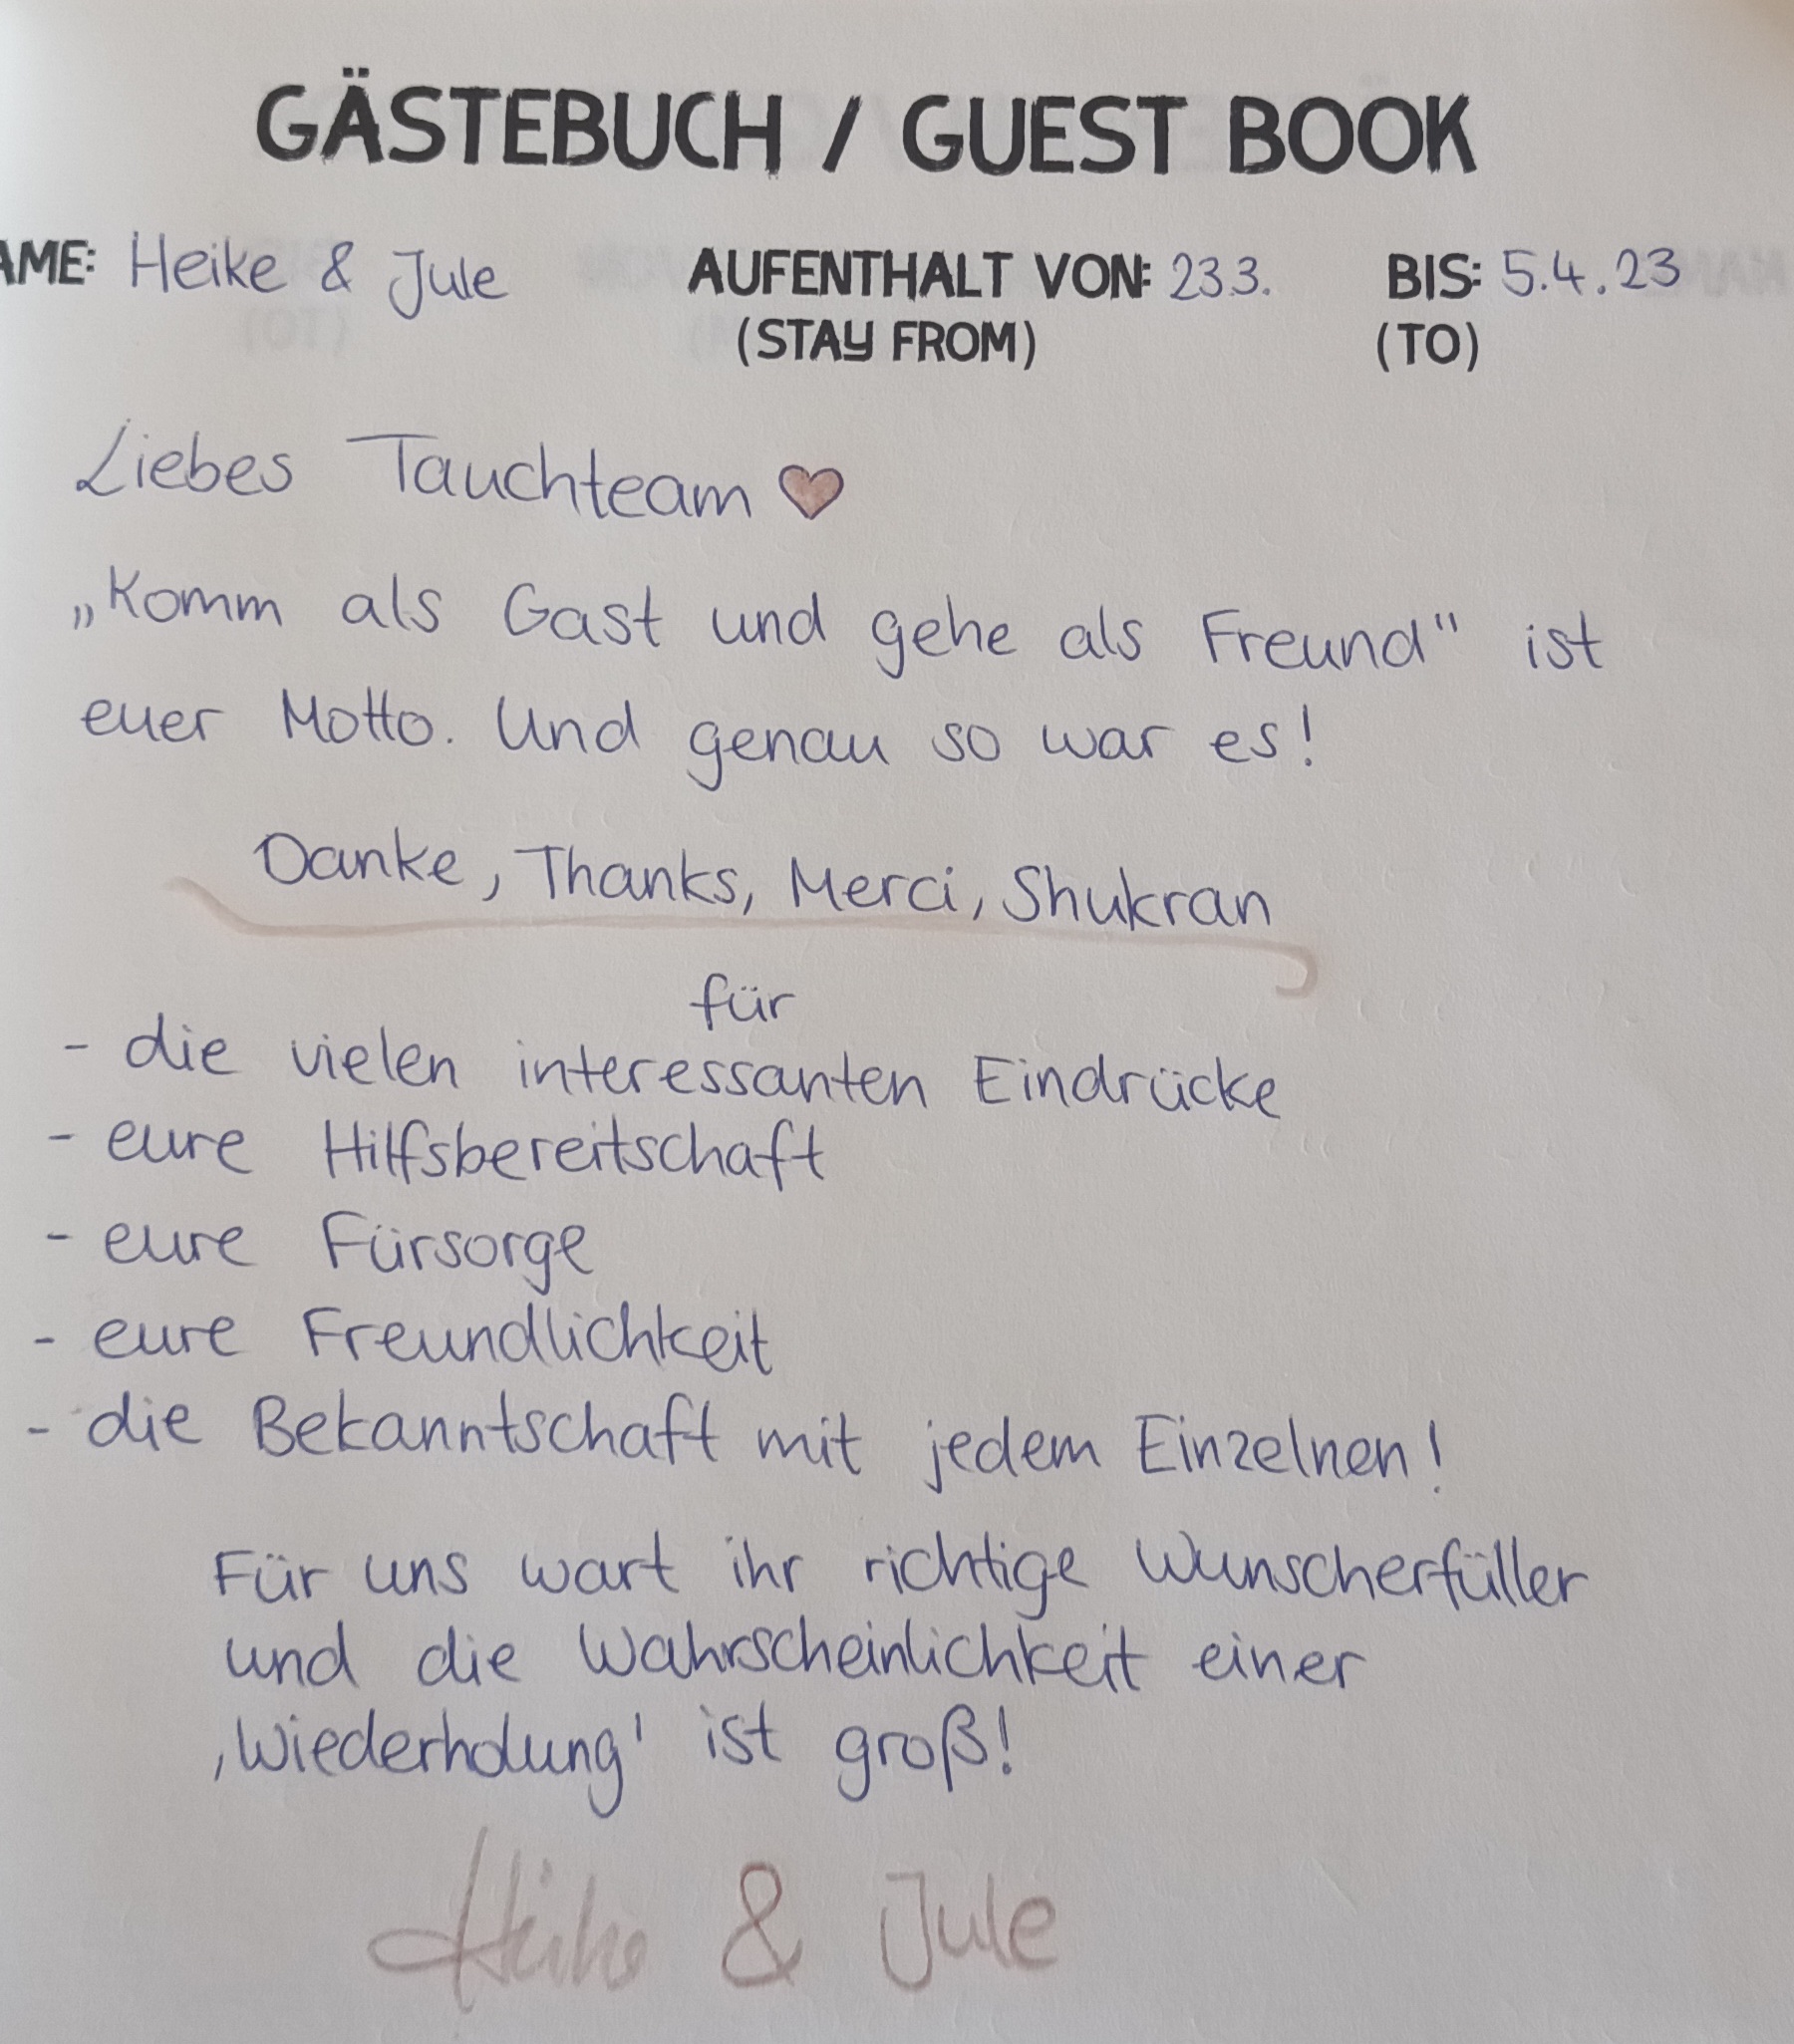 GÄSTEBUCH / GUEST BOOK
AME: Heike & Jule AUFENTHALT VON: 23.3. BIS: 5.4.23
(STAY FROM) (TO)
Liebes Tauchteam
„Komm als Gast und gehe als Freund" ist
euer Motto. Und genau so war es!
Danke, Thanks, Merci, Shukran
für
- die vielen interessanten Eindrücke
- eure Hilfsbereitschaft
- eure Fürsorge
- eure Freundlichkeit
- die Bekanntschaft mit jedem Einzelnen!
Für uns wart ihr richtige Wunscherfüller
und die Wahrscheinlichkeit einer
‚Wiederholung' ist groß!
Heike & Jule